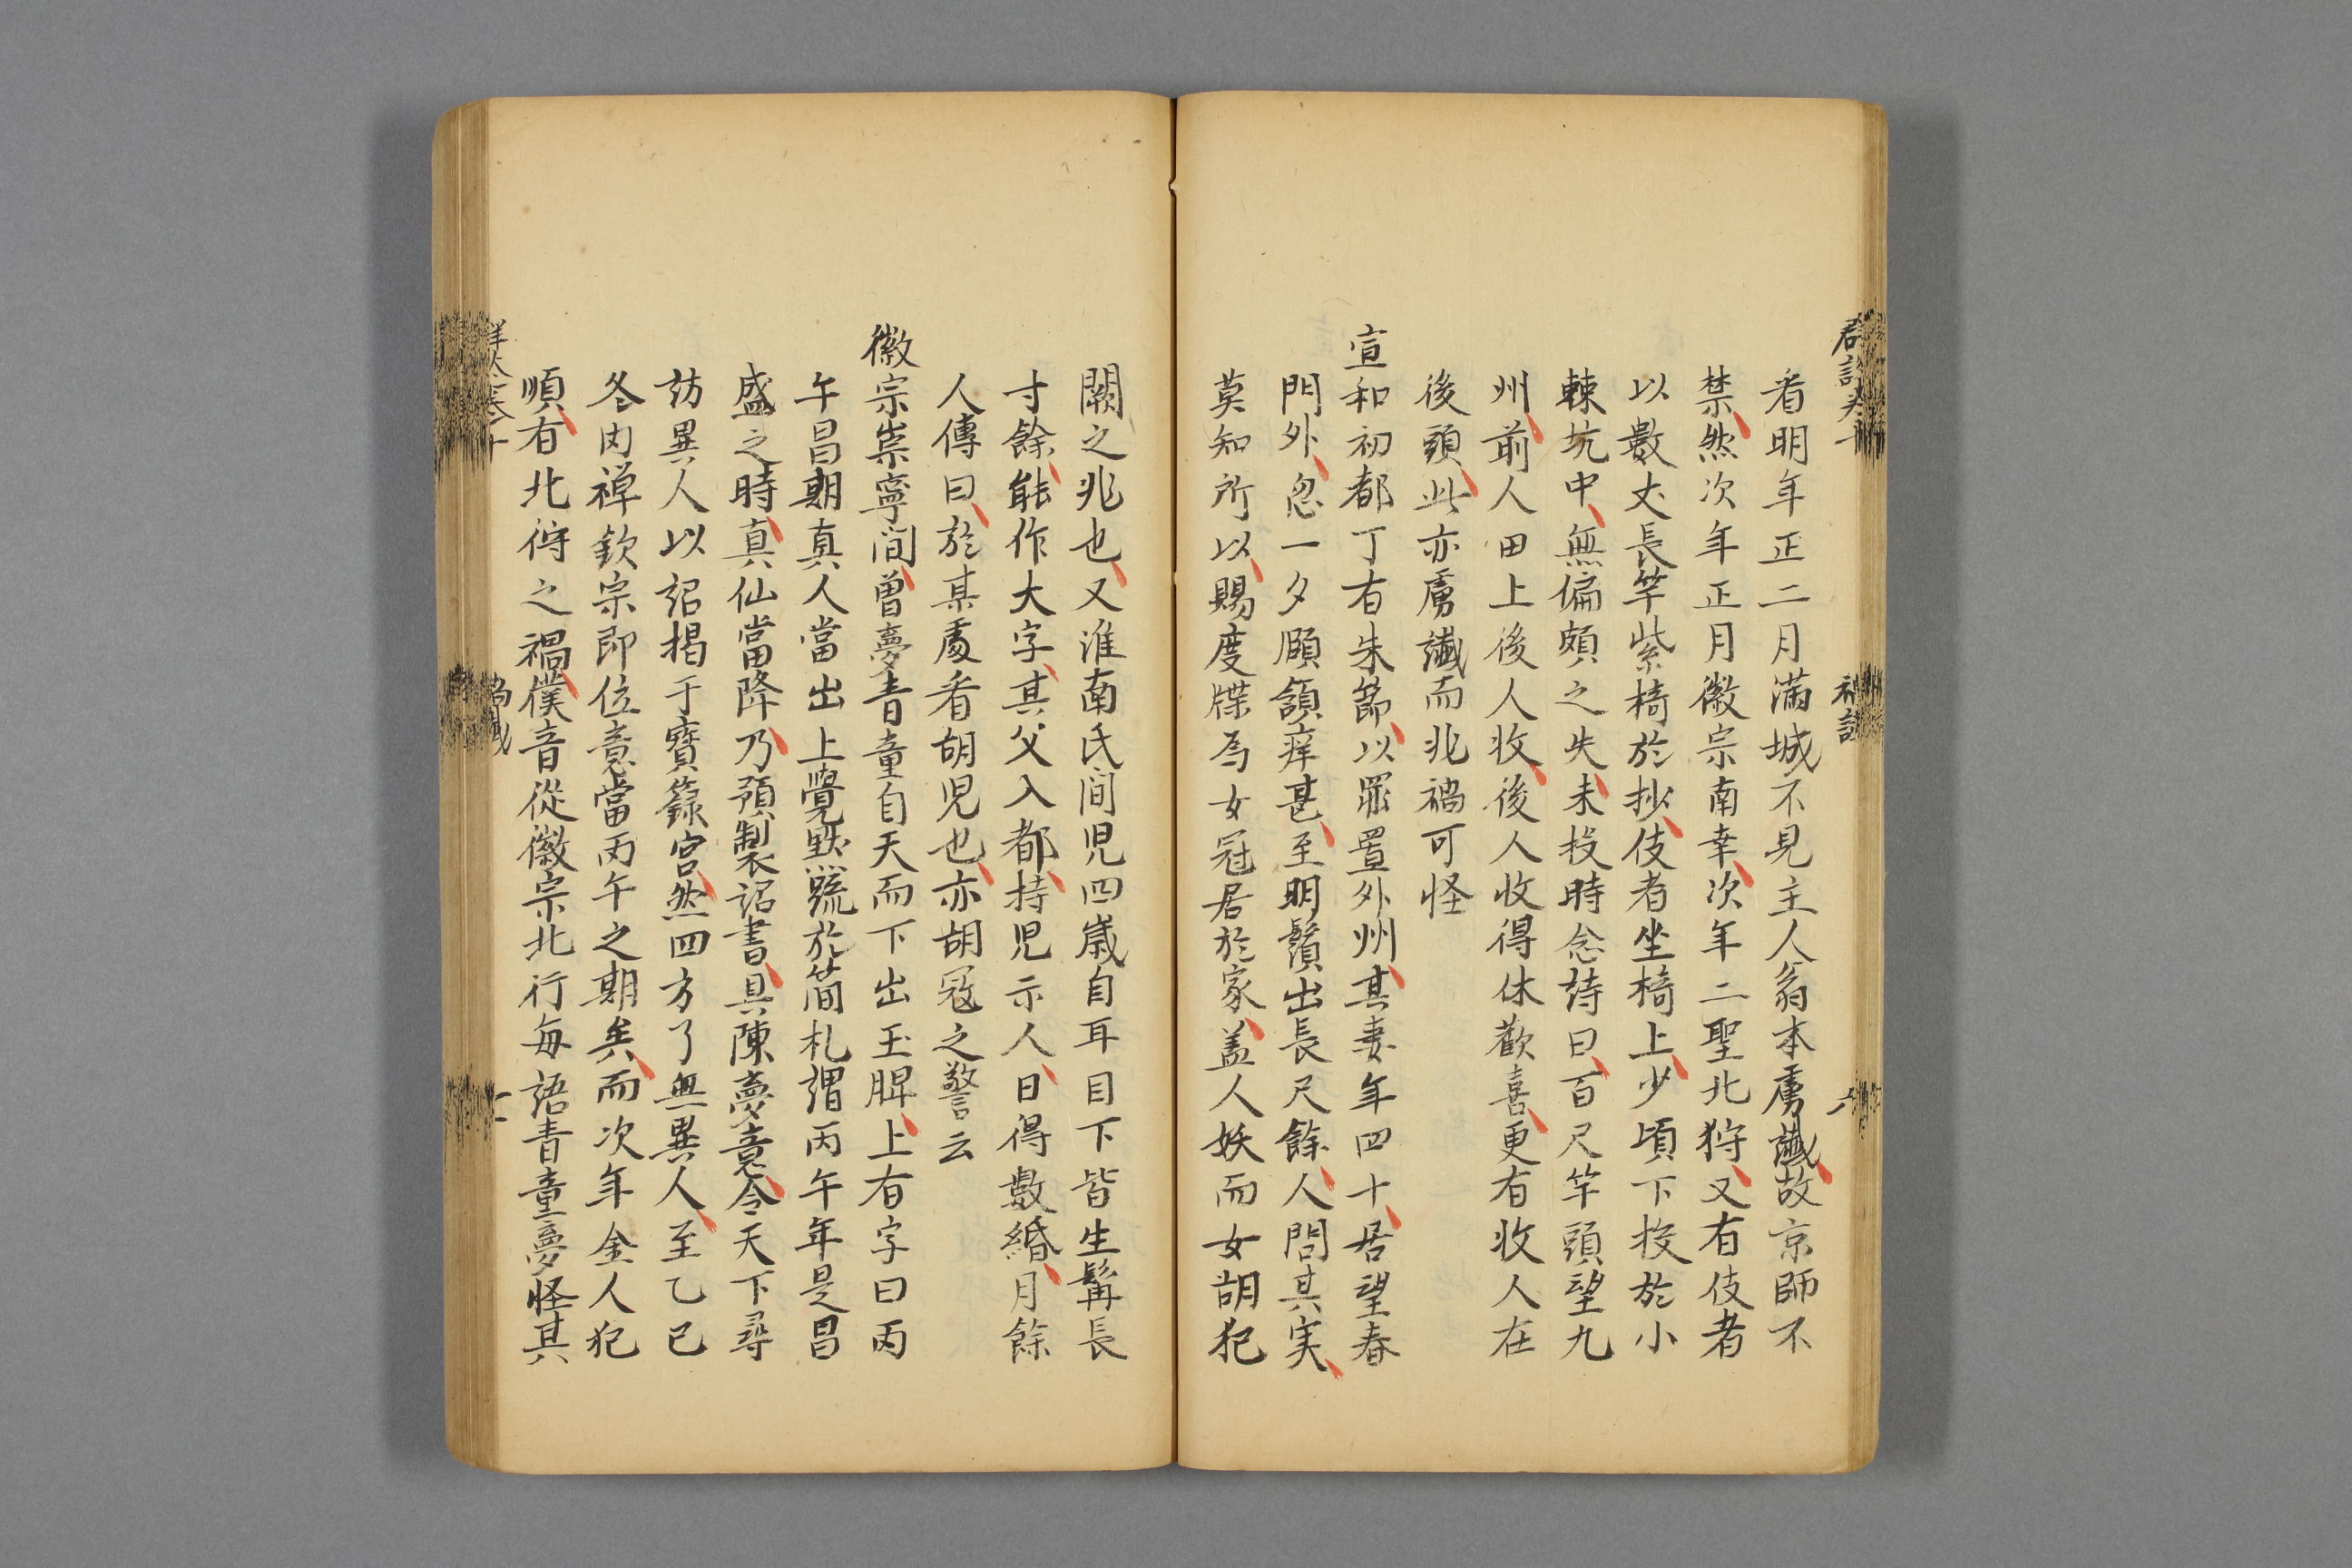 看明年正二月滿城不見主人翁本虜讖故京師不
禁然次年正月徽宗南幸次年二聖北狩又有伎者
以數丈長竿紫椅於抄伎者坐椅上少頃下投於小
棘坑中無偏頗之失未投時念詩曰百尺竿頭望九
州前人田上後人收後人收得休歡喜更有收人在
後頭此亦虜讖而兆禍可怪
宣和初都丁有朱節以罪置外州其妻年四十居望春
門外忽一夕頤頷痒甚至明鬚出長尺餘人問其实
莫知所以賜度牒為女冠居於家盖人妖而女胡犯
闕之兆也又淮南民間児四歲自耳目下皆生髯長
寸餘能作大字其父入都持児示人日得數緡月餘
人傳曰於某處看胡児也亦胡冦之警云
徽宗崇寧間曾夢青童自天而下出玉牌上有字曰丙
午昌期真人當出上覺默䟽於簡札謂丙午年是昌
盛之時真仙當降乃預製詔書具陳夢意令天下尋
訪異人以詔揭于寶籙宮然四方了無異人至乙巳
冬内禅欽宗即位意當丙午之期矣而次年金人犯
順有北狩之禍僕音從徽宗北行每語青童夢怪其